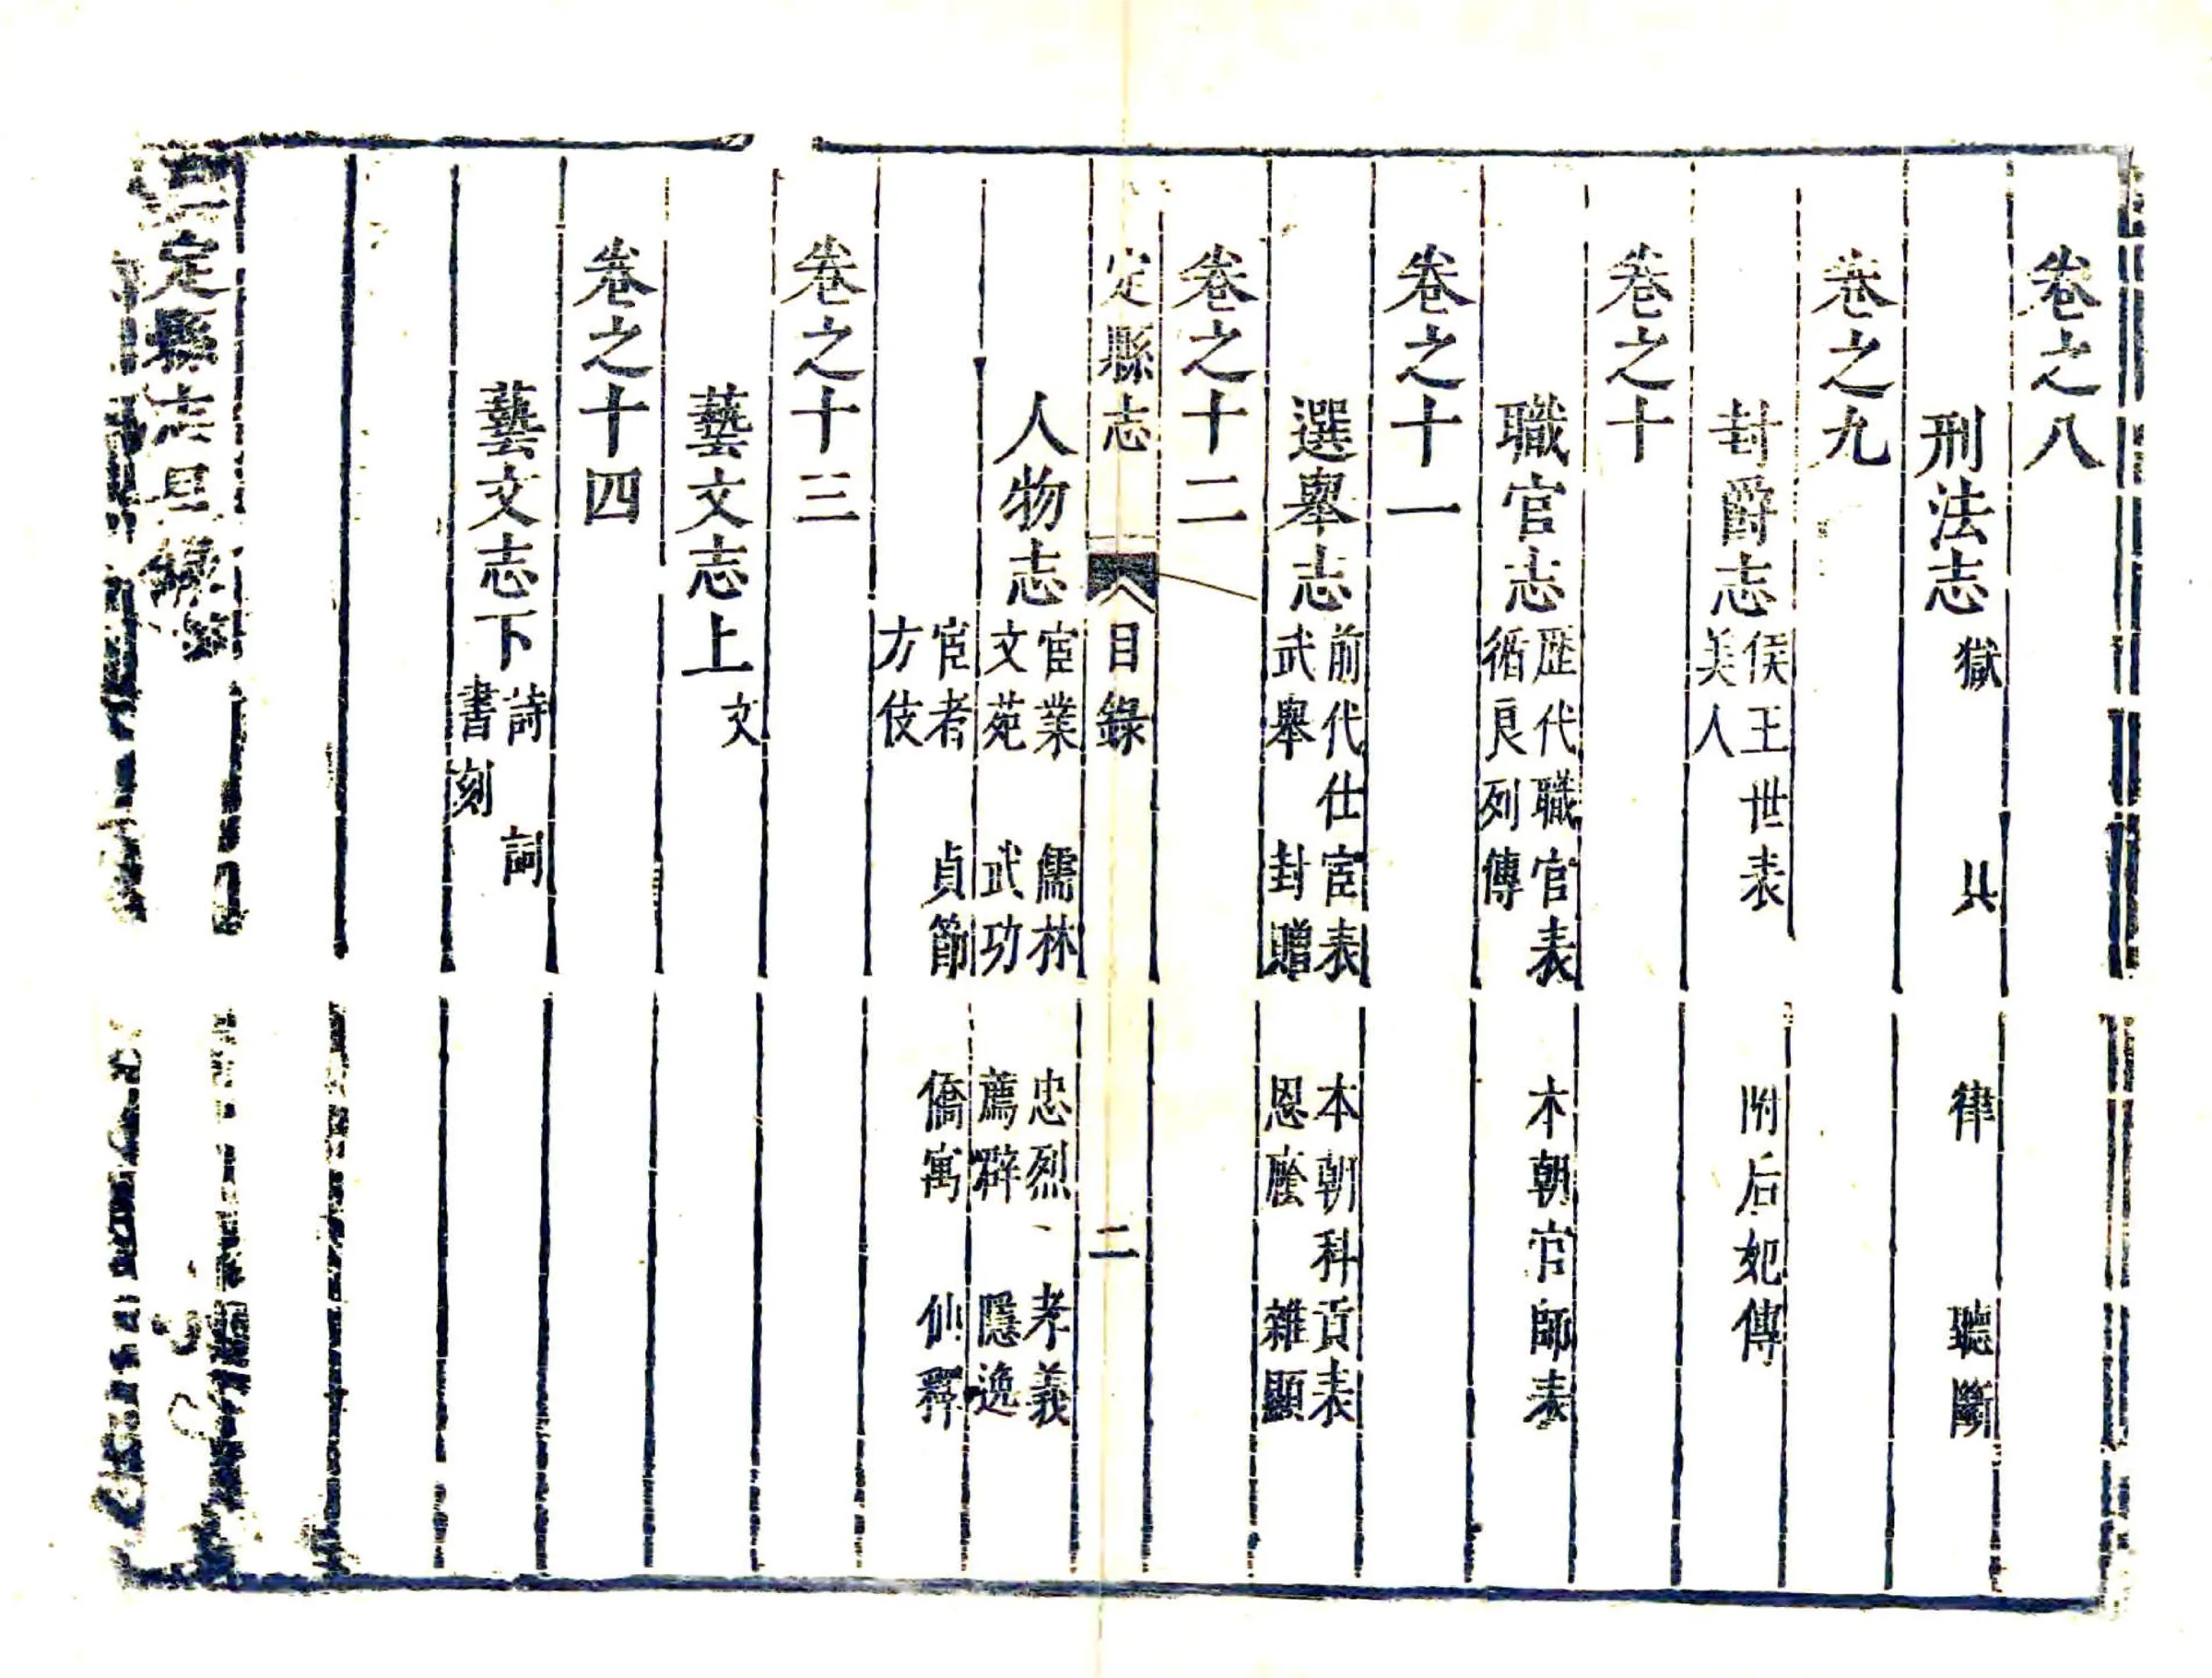 卷之八
刑法志 獄 具 律 聽斷
卷之九
封爵志 侯王世表 附后妃傳
美人
卷之十
職官志 歷代職官表 本朝官師表
循良列傳
卷之十一
選舉志 前代仕宦表 本朝科貢表
武舉 封贈 恩廕 雜顯
卷之十二
定縣志 目錄 二
人物志 宦業 儒林 忠烈 孝義
文苑 武功 薦辟 隱逸
宦者 貞節 僑寓 仙釋
方伎
卷之十三
藝文志上 文
卷之十四
藝文志下 詩 詞
書刻
定縣志目錄終